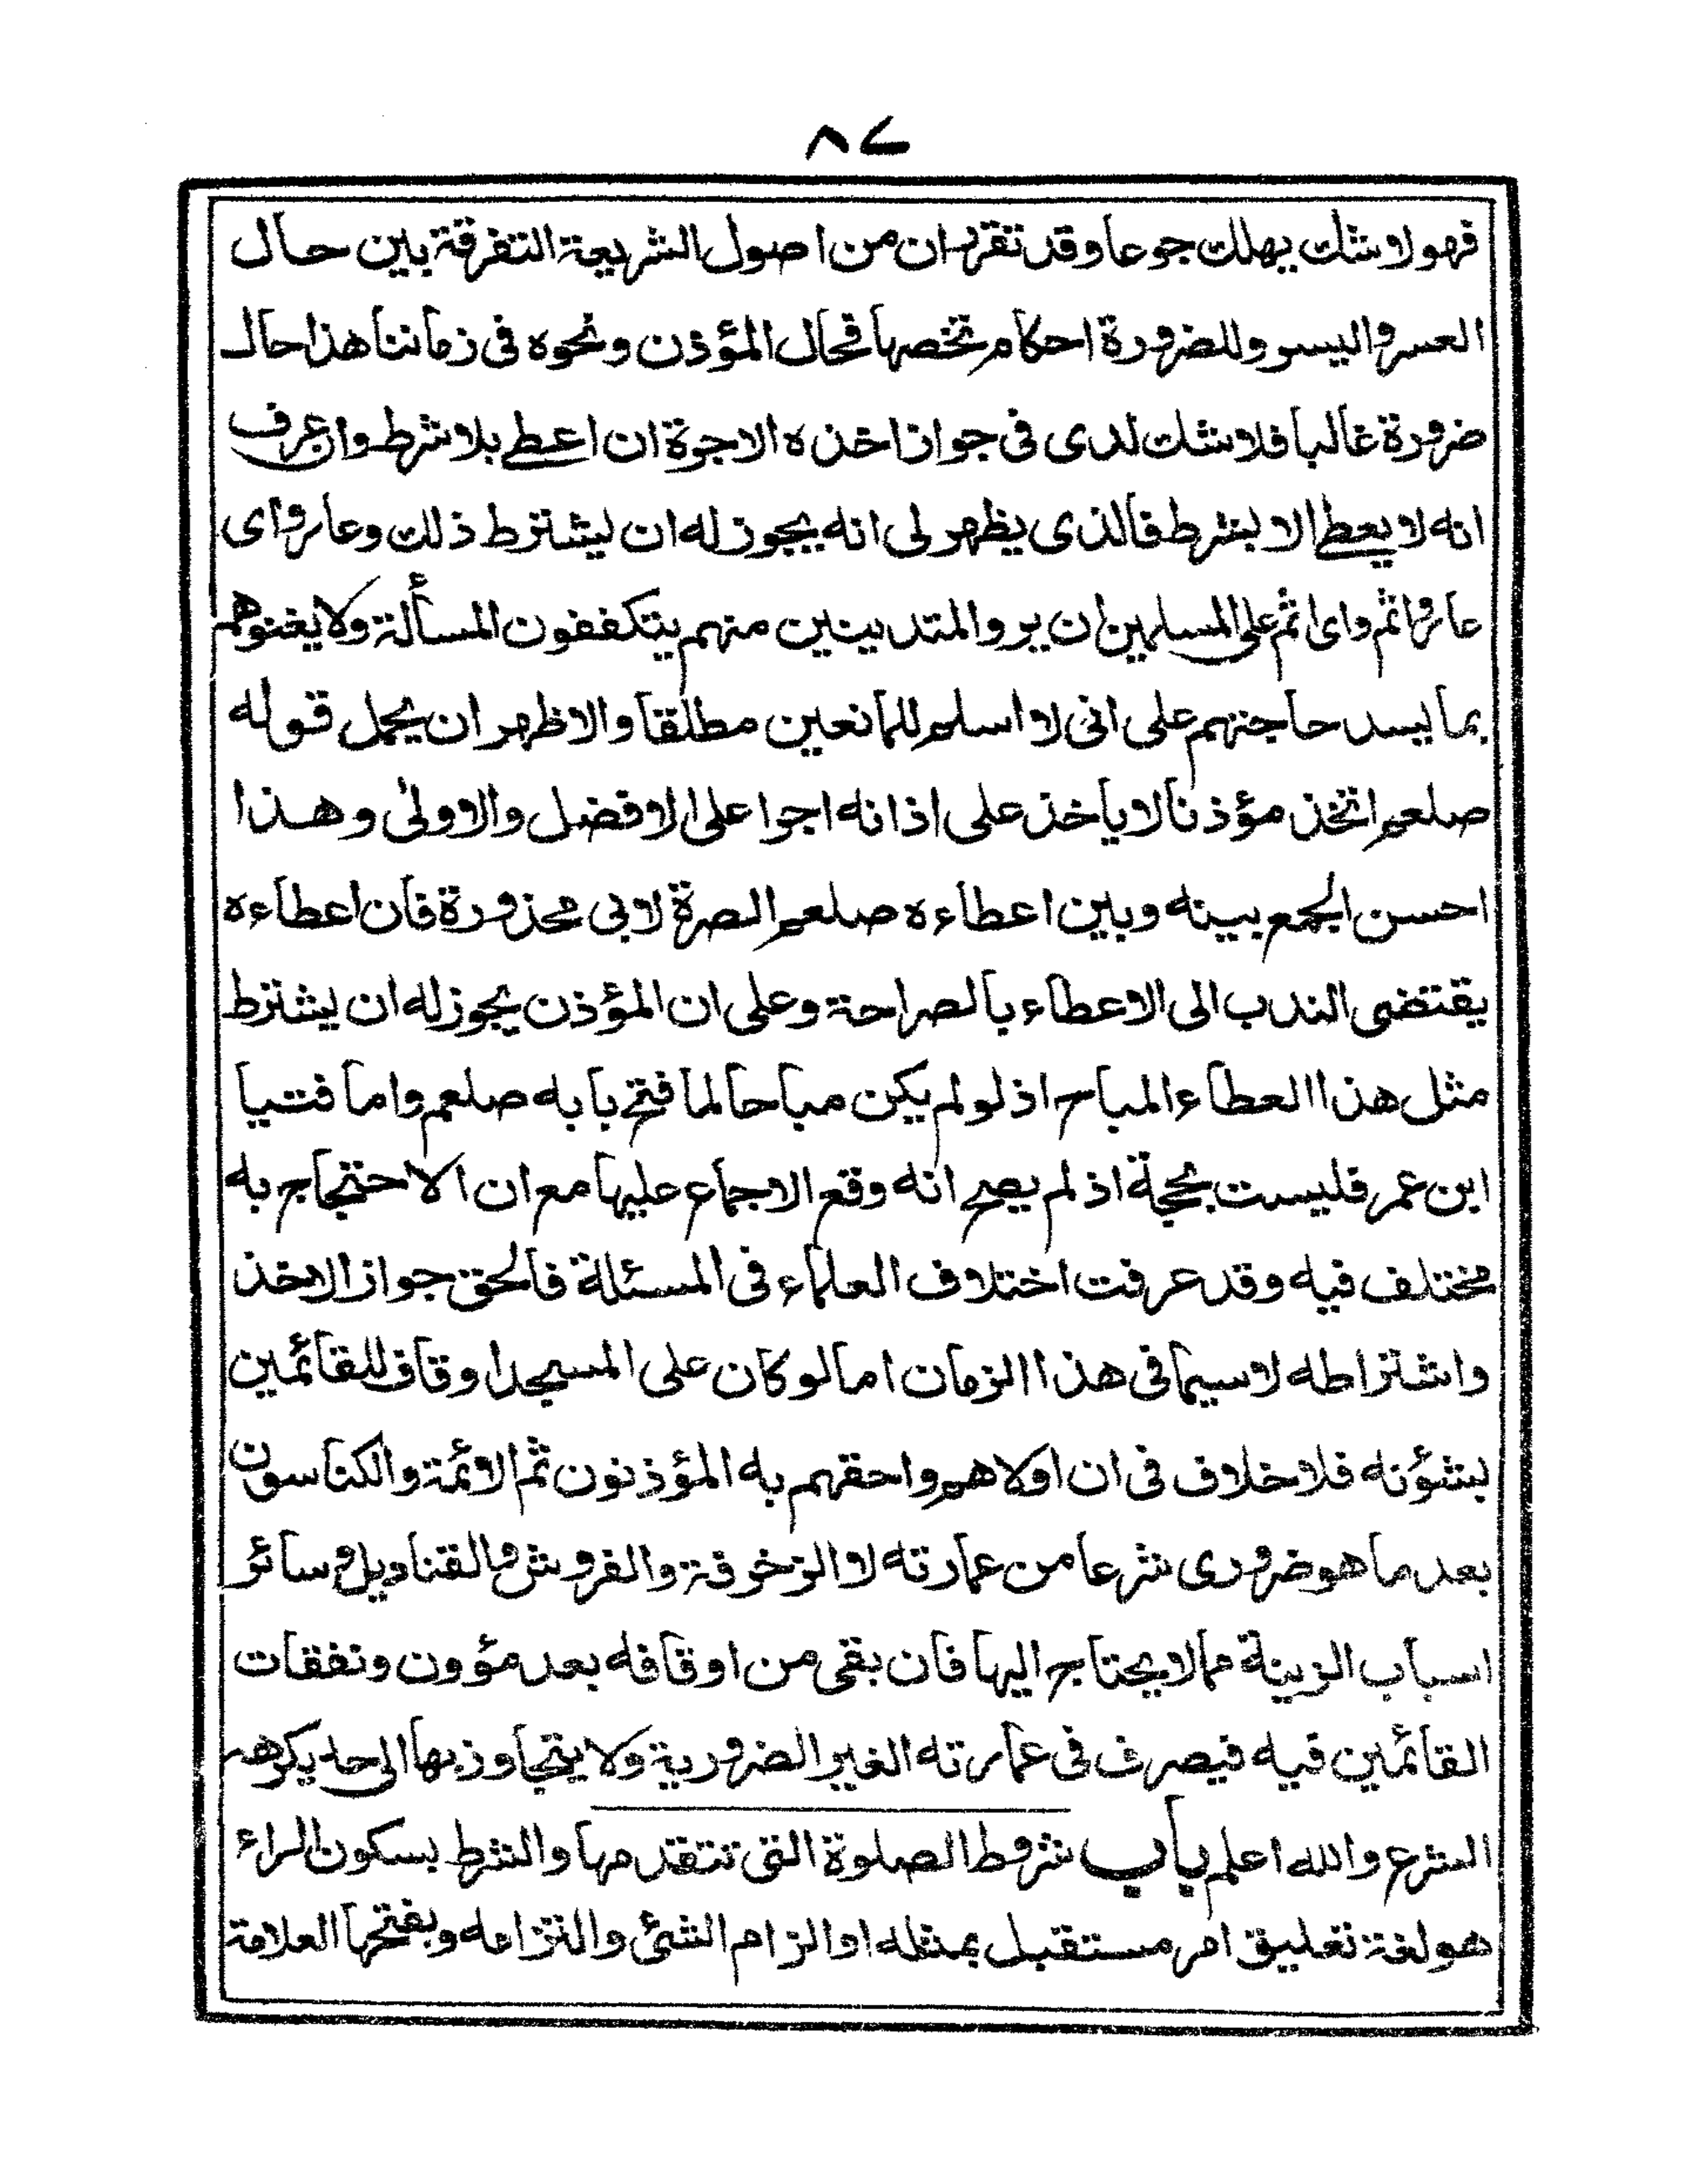 ٨٧
فهو لا شك يهلك جوعا وقد تقرر ان من اصول الشريعة التفرقة بين حال
العسر واليسر وللضرورة احكام تخصها فحال المؤذن ونحوه فى زماننا هذا حال
ضرورة غالبا فلا شك لدى فى جواز اخذه الاجرة ان اعطى بلا شرط وان عرف
انه لا يعطى الا بشرط فالذى يظهر لى انه يجوز له ان يشترط ذلك وعار واى
عار واثم واى اثم على المسلمين ان يروا المتدينين منهم يتكففون المسألة ولا يغنوهم
بما يسد حاجتهم على انى لا اسلم للمانعين مطلقا والاظهر ان يحمل قوله
صلعم اتخذ مؤذنا لا يأخذ على اذانه اجرا على الافضل والاولى وهذا
احسن الجمع بينه وبين اعطاءه صلعم الصرة لابى محذورة فان اعطاءه
يقتضى الندب الى الاعطاء بالصراحة وعلى ان المؤذن يجوز له ان يشترط
مثل هذا العطاء المباح اذ لو لم يكن مباحا لما فتح بابه صلعم واما فتيا
ابن عمر فليست بحجة اذ لم يصح انه وقع الاجماع عليها مع ان الاحتجاج به
مختلف فيه وقد عرفت اختلاف العلماء فى المسئلة فالحق جواز الاخذ
واشتراطه لا سيما فى هذا الزمان اما لو كان على المسجد اوقاف للقائمين
بشؤنه فلا خلاف فى ان اولاهم واحقهم به المؤذنون ثم الائمة والكناسون
بعد ما هو ضرورى شرعا من عمارته لا الزخرفة والفروش والقناديل وسائر
اسباب الزينة مما لا يحتاج اليها فان بقى من اوقافه بعد مؤون ونفقات
القائمين فيه فيصرف فى عمارته الغير الضرورية ولا يتجاوز بها الى حد يكرهه
الشرع والله اعلم باب شروط الصلوة التى تتقدمها والشرط بسكون الراء
هو لغة تعليق امر مستقبل بمثله او الزام الشئ والتزامه وبفتحها العلامة